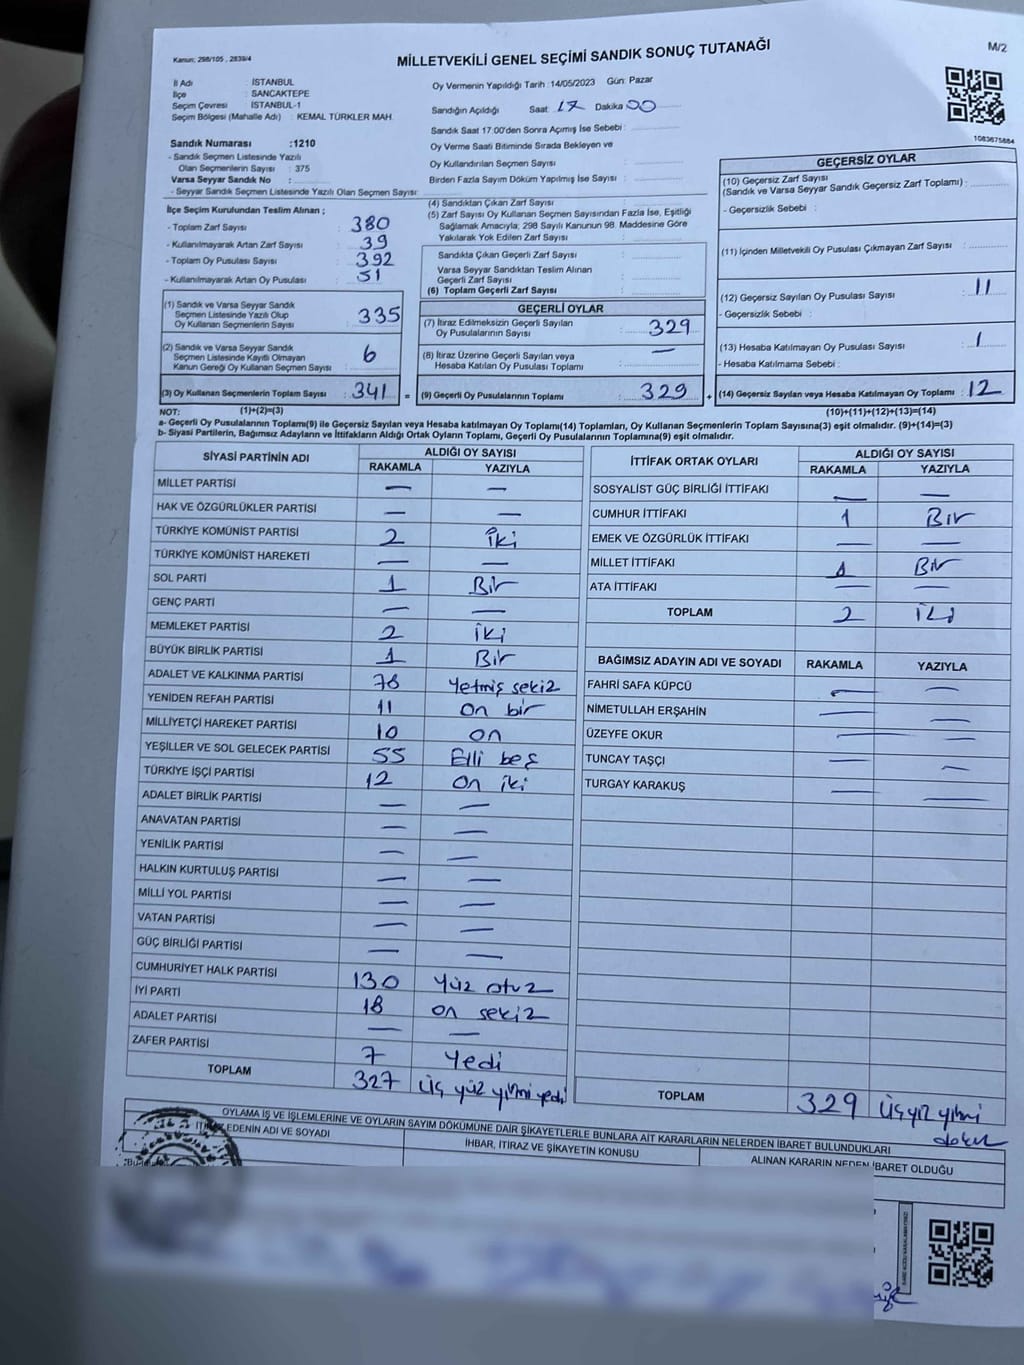 Kanun: 298/105 , 2839/4
MİLLETVEKİLİ GENEL SEÇİMİ SANDIK SONUÇ TUTANAĞI
M/2
İl Adı : İSTANBUL
İlçe : SANCAKTEPE
Seçim Çevresi : İSTANBUL-1
Seçim Bölgesi (Mahalle Adı) : KEMAL TÜRKLER MAH.
Sandık Numarası :1210
- Sandık Seçmen Listesinde Yazılı
Olan Seçmenlerin Sayısı : 375
Varsa Seyyar Sandık No :
- Seyyar Sandık Seçmen Listesinde Yazılı Olan Seçmen Sayısı:
Oy Vermenin Yapıldığı Tarih :14/05/2023 Gün: Pazar
Sandığın Açıldığı Saat: 17 Dakika 00
Sandık Saat 17:00'den Sonra Açımış İse Sebebi :
Oy Verme Saati Bitiminde Sırada Bekleyen ve
Oy Kullandırılan Seçmen Sayısı :
Birden Fazla Sayım Döküm Yapılmış İse Sayısı :
1083675884
İlçe Seçim Kurulundan Teslim Alınan ;
- Toplam Zarf Sayısı : 380
- Kullanılmayarak Artan Zarf Sayısı : 39
- Toplam Oy Pusulası Sayısı : 392
- Kullanılmayarak Artan Oy Pusulası : 51
(1) Sandık ve Varsa Seyyar Sandık
Seçmen Listesinde Yazılı Olup
Oy Kullanan Seçmenlerin Sayısı : 335
(2) Sandık ve Varsa Seyyar Sandık
Seçmen Listesinde Kayıtlı Olmayan
Kanun Gereği Oy Kullanan Seçmen Sayısı : 6
(3) Oy Kullanan Seçmenlerin Toplam Sayısı : 341 =
(4) Sandıktan Çıkan Zarf Sayısı
(5) Zarf Sayısı Oy Kullanan Seçmen Sayısından Fazla İse, Eşitliği
Sağlamak Amacıyla; 298 Sayılı Kanunun 98. Maddesine Göre
Yakılarak Yok Edilen Zarf Sayısı :
Sandıkta Çıkan Geçerli Zarf Sayısı :
Varsa Seyyar Sandıktan Teslim Alınan
Geçerli Zarf Sayısı :
(6) Toplam Geçerli Zarf Sayısı :
GEÇERLİ OYLAR
(7) İtiraz Edilmeksizin Geçerli Sayılan
Oy Pusulalarının Sayısı : 329
(8) İtiraz Üzerine Geçerli Sayılan veya
Hesaba Katılan Oy Pusulası Toplamı : —
(9) Geçerli Oy Pusulalarının Toplamı : 329 +
GEÇERSİZ OYLAR
(10) Geçersiz Zarf Sayısı
(Sandık ve Varsa Seyyar Sandık Geçersiz Zarf Toplamı) :
- Geçersizlik Sebebi :
(11) İçinden Milletvekili Oy Pusulası Çıkmayan Zarf Sayısı :
(12) Geçersiz Sayılan Oy Pusulası Sayısı : 11
- Geçersizlik Sebebi :
(13) Hesaba Katılmayan Oy Pusulası Sayısı : 1
- Hesaba Katılmama Sebebi :
(14) Geçersiz Sayılan veya Hesaba Katılmayan Oy Toplamı : 12
NOT: (1)+(2)=(3) (10)+(11)+(12)+(13)=(14)
a- Geçerli Oy Pusulalarının Toplamı(9) ile Geçersiz Sayılan veya Hesaba katılmayan Oy Toplamı(14) Toplamları, Oy Kullanan Seçmenlerin Toplam Sayısına(3) eşit olmalıdır. (9)+(14)=(3)
b- Siyasi Partilerin, Bağımsız Adayların ve İttifakların Aldığı Ortak Oyların Toplamı, Geçerli Oy Pusulalarının Toplamına(9) eşit olmalıdır.
SİYASİ PARTİNİN ADI ALDIĞI OY SAYISI
RAKAMLA YAZIYLA
MİLLET PARTİSİ — —
HAK VE ÖZGÜRLÜKLER PARTİSİ — —
TÜRKİYE KOMÜNİST PARTİSİ 2 iki
TÜRKİYE KOMÜNİST HAREKETİ — —
SOL PARTİ 1 Bir
GENÇ PARTİ — —
MEMLEKET PARTİSİ 2 iki
BÜYÜK BİRLİK PARTİSİ 1 Bir
ADALET VE KALKINMA PARTİSİ 78 Yetmiş sekiz
YENİDEN REFAH PARTİSİ 11 On bir
MİLLİYETÇİ HAREKET PARTİSİ 10 on
YEŞİLLER VE SOL GELECEK PARTİSİ 55 Elli beş
TÜRKİYE İŞÇİ PARTİSİ 12 On iki
ADALET BİRLİK PARTİSİ — —
ANAVATAN PARTİSİ — —
YENİLİK PARTİSİ — —
HALKIN KURTULUŞ PARTİSİ — —
MİLLİ YOL PARTİSİ — —
VATAN PARTİSİ — —
GÜÇ BİRLİĞİ PARTİSİ — —
CUMHURİYET HALK PARTİSİ 130 Yüz otuz
İYİ PARTİ 18 on sekiz
ADALET PARTİSİ — —
ZAFER PARTİSİ 7 Yedi
TOPLAM 327 üç yüz yirmi yedi
İTTİFAK ORTAK OYLARI ALDIĞI OY SAYISI
RAKAMLA YAZIYLA
SOSYALİST GÜÇ BİRLİĞİ İTTİFAKI — —
CUMHUR İTTİFAKI 1 Bir
EMEK VE ÖZGÜRLÜK İTTİFAKI — —
MİLLET İTTİFAKI 1 Bir
ATA İTTİFAKI — —
TOPLAM 2 iki
BAĞIMSIZ ADAYIN ADI VE SOYADI RAKAMLA YAZIYLA
FAHRİ SAFA KÜPCÜ — —
NİMETULLAH ERŞAHİN — —
ÜZEYFE OKUR — —
TUNCAY TAŞÇI — —
TURGAY KARAKUŞ — —
TOPLAM 329 üç yüz yirmi
dokuz
OYLAMA İŞ VE İŞLEMLERİNE VE OYLARIN SAYIM DÖKÜMÜNE DAİR ŞİKAYETLERLE BUNLARA AİT KARARLARIN NELERDEN İBARET BULUNDUKLARI
EDENİN ADI VE SOYADI
İHBAR, İTİRAZ VE ŞİKAYETİN KONUSU
ALINAN KARARIN NEDEN İBARET OLDUĞU